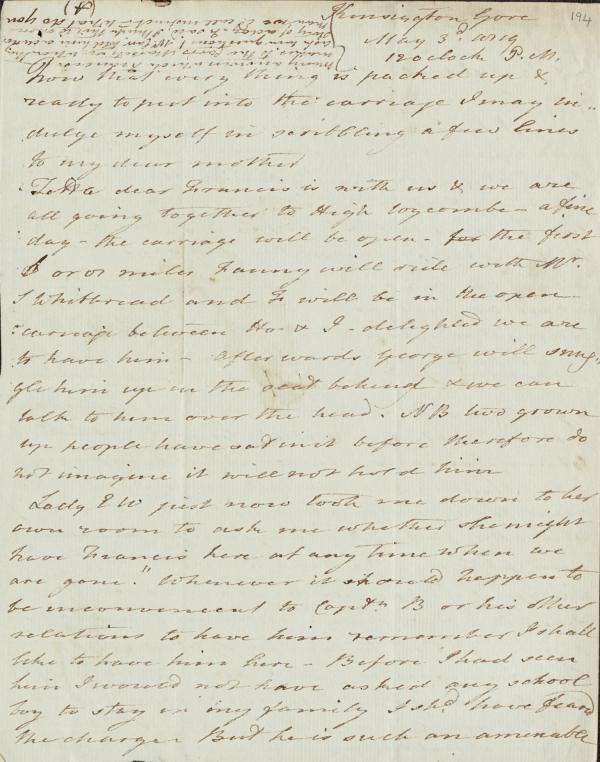 194
Kensington Gore
May 3d 1819
12 oclock P.M.
Now that every thing is packed up &
ready to put into the carriage I may in-
dulge myself in scribbling a few lines
to my dear mother
dear Francis is with us & we are
all going together to High Wycombe - a fine
day - the carriage will be open - for the first
8 or miles Fanny will ride with Mr.
S Whitbread and F will be in the open
carriage between Ho- & I - delighted we are
to have him - afterwards George will smug-
gle him up in the seat behind & we can
talk to him over the head. NB two grown
up people have sat in it before therefore do
not imagine it will not hold him
Lady E W just now took me down to her
own room to ask me whether she might
have Francis here at any time when we
are gone. "Whenever it should happen to
be inconvenient to Captn B or his other
relations to have him remember I shall
like to have him here - Before I had seen
him I would not have asked any school
boy to stay in my family I shd have feard
the charge. But he is such an amenable